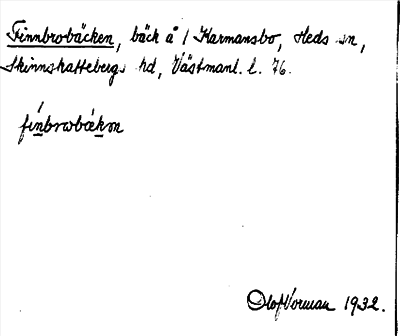 Finnbrobäcken, bäck å 1 Karmansbo, Heds sn,
Skinnskattebergs hd, Västmanl. l. 76.
fínbrωbækən
Olof Vorman 1932.